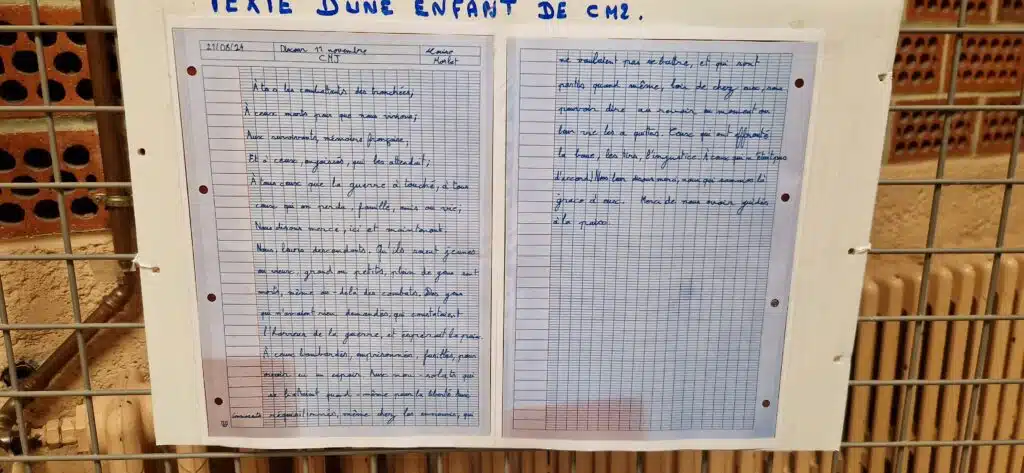 TEXTE D'UNE ENFANT DE CM2.
21/08/24
Discour 11 novembre
CMJ
Louise
À tous les combattants des tranchées,
À ceux morts pour que nous vivions;
Aux survivants, mémoire française;
Et à ceux, angoissés, qui les attendait;
À tous ceux que la guerre à touché, à tous
ceux qui on perdu: famille, amis ou vie;
Nous disons merci, ici et maintenant.
Nous, leurs descendants. Qu'ils soient jeunes
ou vieux, grand ou petits, plein de gens sont
morts, même au-delà des combats. Des gens
qui n'avaient rien demandés, qui constataient
l'horreur de la guerre, et espérait la paix.
À ceux bombardés, emprisonnés, fusillés, pour
avoir eu un espoir. Aux non-soldats qui
se battaient quand-même pour la liberté. Aux
innocents réquisitionnés, même chez les ennemis, qui
ne voulaient pas se battre, et qui sont
partis quand même, loin de chez eux, sans
pouvoir dire au revoir au moment ou
leur vie les a quittés. Ceux qui ont affronté
la boue, les tirs, l'injustice. À ceux qui n'était pas
d'accord! Nous leur devons merci, nous qui sommes là
grâce à eux. Merci de nous avoir guidés
à la paix.